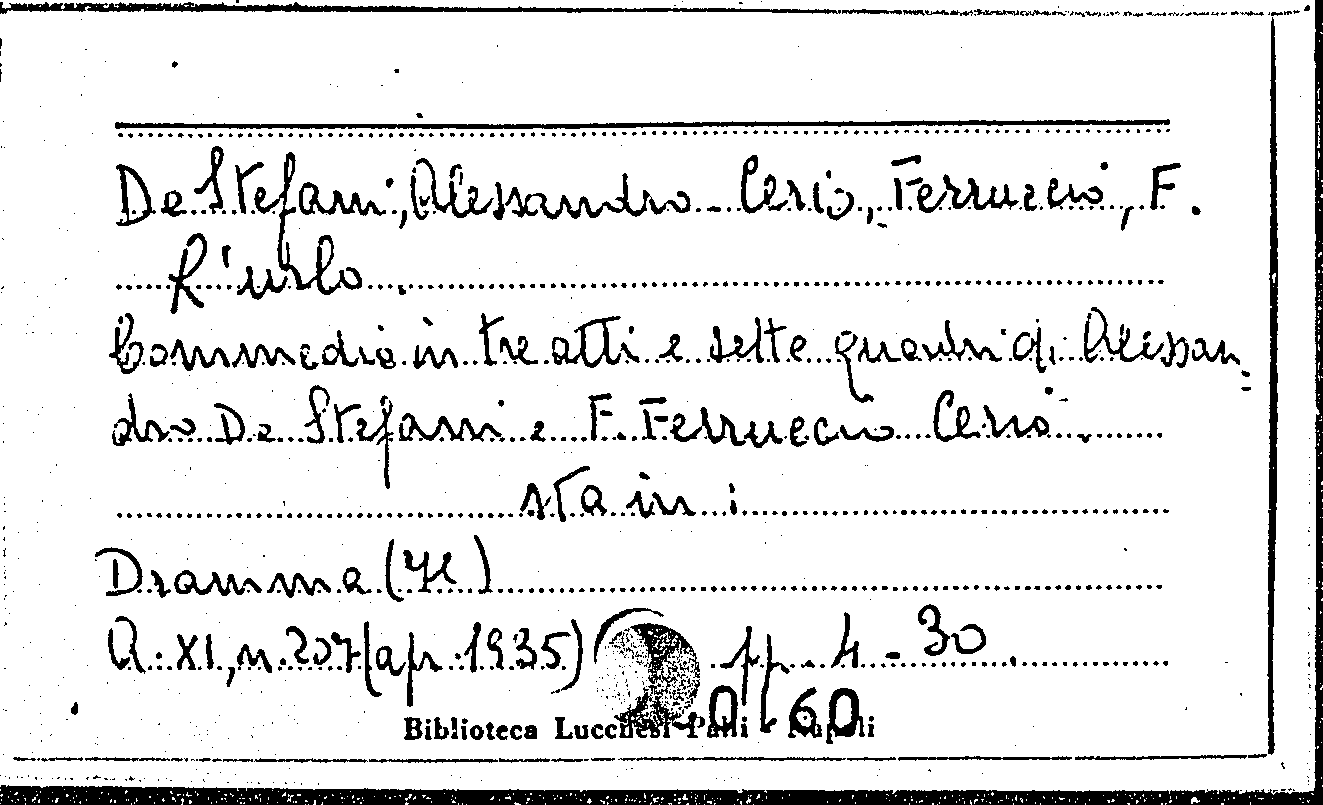 De Stefani, Alessandro - Cerio, Ferruccio, F.
L'urlo.
Commedia in tre atti e sette quadri di Alessan=
dro De Stefani e F. Ferruccio Cerio.
sta in:
Dramma (Il)
A. XI, n. 207 (apr. 1935) pp. 4-30.
Biblioteca Lucchesi-Palli - Napoli
60